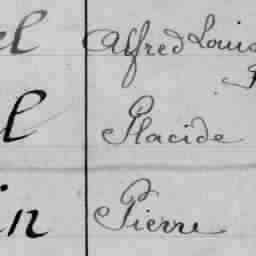 el Alfred Louis
l Placide
in Pierre